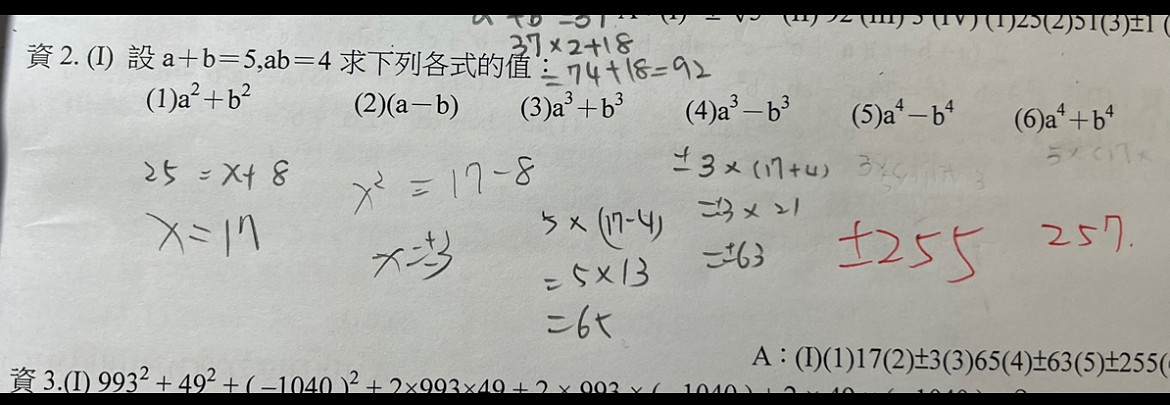 37×2+18
資 2. (I) 設 a+b=5,ab=4 求下列各式的值：
=74+18=92
(1)a²+b² (2)(a−b) (3)a³+b³ (4)a³−b³ (5)a⁴−b⁴ (6)a⁴+b⁴
25 = x+8
x=17
x² = 17−8
x=±3
5×(17-4)
=5×13
=65
±3×(17+4)
=±3×21
=±63
±255
257.
A：(I)(1)17(2)±3(3)65(4)±63(5)±255(
資 3.(I) 993² + 49² + (−1040)² + 2×993×49 + 2 × 993 × (